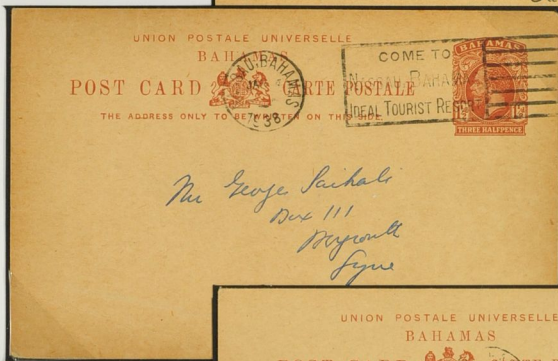 UNION POSTALE UNIVERSELLE
BAHAMAS
POST CARD CARTE POSTALE
THE ADDRESS ONLY TO BE WRITTEN ON THIS SIDE
BAHAMAS
1938
COME TO
NASSAU BAHAMAS
IDEAL TOURIST RESORT
BAHAMAS
1½D 1½D
THREE HALFPENCE
Mr George
Box 111
Beyrouth
Syrie
UNION POSTALE UNIVERSELLE
BAHAMAS